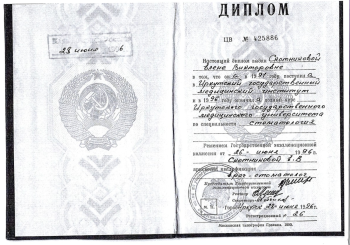 28 июня
ДИПЛОМ
ЦВ № 425886
Настоящий диплом выдан Скотниковой
Елене Викторовне
в том, что он а в 19 91 году поступил а
в Иркутский государственный
медицинский институт
и в 19 96 году окончил а полный курс
Иркутского государственного
медицинского университета
по специальности стоматология
Решением Государственной экзаменационной
комиссии от 26 июня 19 96 г.
Скотниковой Е.В
присвоена квалификация
врач-стоматолог
Председатель Государственной
экзаменационной комиссии
Ректор
Секретарь
Город Иркутск 28 июня 1996 г.
Регистрационный № 26
Московская типография Гознака. 1990.